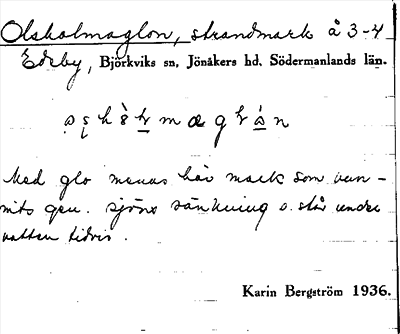 Olskolmaglon, strandmark å 3-4
Edeby, Björkviks sn, Jönåkers hd. Södermanlands län.
Med glo menas här mark som vun-
nits gen. sjöns sänkning o. står under
vatten tidvis.
Karin Bergström 1936.